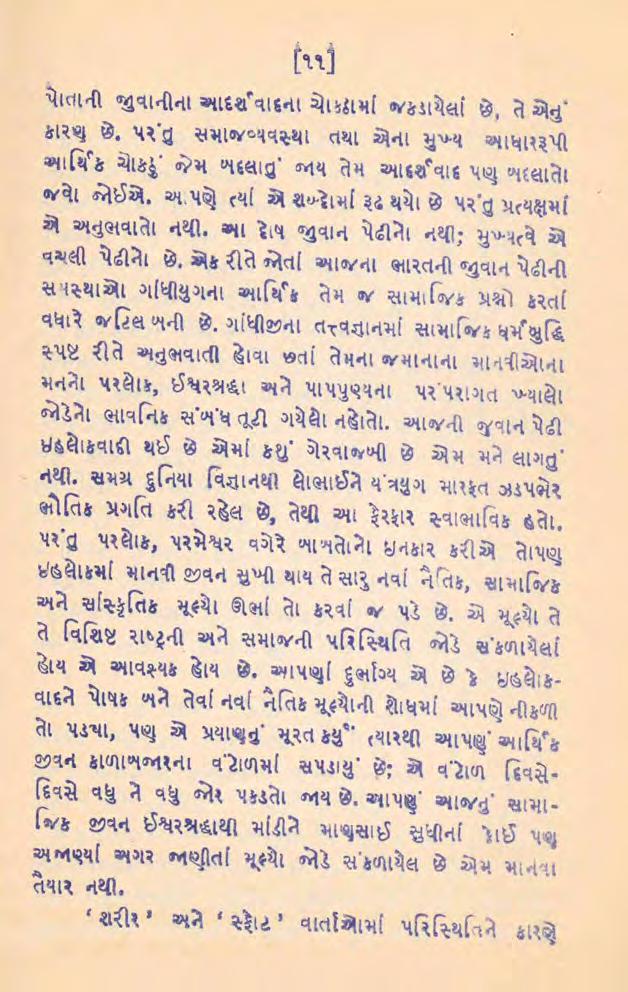 [૧૧]
પોતાની જુવાનીના આદર્શવાદના ચોકઠામાં જકડાયેલાં છે, તે એનું
કારણ છે. પરંતુ સમાજવ્યવસ્થા તથા એના મુખ્ય આધારરૂપી
આર્થિક ચોકઠું જેમ બદલાતું જાય તેમ આદર્શવાદ પણ બદલાતો
જવો જોઈએ. આપણે ત્યાં એ શબ્દોમાં રૂઢ થયો છે પરંતુ પ્રત્યક્ષમાં
એ અનુભવાતો નથી. આ દોષ જુવાન પેઢીનો નથી; મુખ્યત્વે એ
વચલી પેઢીનો છે. એક રીતે જોતાં આજના ભારતની જુવાન પેઢીની
સમસ્યાઓ ગાંધીયુગના આર્થિક તેમ જ સામાજિક પ્રશ્નો કરતાં
વધારે જટિલ બની છે. ગાંધીજીના તત્ત્વજ્ઞાનમાં સામાજિક ધર્મબુદ્ધિ
સ્પષ્ટ રીતે અનુભવાતી હોવા છતાં તેમના જમાનાના માનવીઓના
મનનો પરલોક, ઈશ્વરશ્રદ્ધા અને પાપપુણ્યના પરંપરાગત ખ્યાલો
જોડેનો ભાવનિક સંબંધ તૂટી ગયેલો નહોતો. આજની જુવાન પેઢી
ઇહલોકવાદી થઈ છે એમાં કશું ગેરવાજબી છે એમ મને લાગતું
નથી. સમગ્ર દુનિયા વિજ્ઞાનથી લોભાઈને યંત્રયુગ મારફત ઝડપભેર
ભૌતિક પ્રગતિ કરી રહેલ છે, તેથી આ ફેરફાર સ્વાભાવિક હતો.
પરંતુ પરલોક, પરમેશ્વર વગેરે બાબતોનો ઇનકાર કરીએ તોપણ
ઇહલોકમાં માનવી જીવન સુખી થાય તે સારુ નવાં નૈતિક, સામાજિક
અને સાંસ્કૃતિક મૂલ્યો ઊભાં તો કરવાં જ પડે છે. એ મૂલ્યો તે
તે વિશિષ્ટ રાષ્ટ્રની અને સમાજની પરિસ્થિતિ જોડે સંકળાયેલાં
હોય એ આવશ્યક હોય છે. આપણાં દુર્ભાગ્ય એ છે કે ઇહલોક-
વાદને પોષક બને તેવાં નવાં નૈતિક મૂલ્યોની શોધમાં આપણે નીકળી
તો પડ્યા, પણ એ પ્રયાણનું મૂરત કર્યું ત્યારથી આપણું આર્થિક
જીવન કાળાબજારના વંટોળમાં સપડાયું છે; એ વંટોળ દિવસે-
દિવસે વધુ ને વધુ જોર પકડતો જાય છે. આપણું આજનું સામા-
જિક જીવન ઈશ્વરશ્રદ્ધાથી માંડીને માણસાઈ સુધીનાં કોઈ પણ
અજાણ્યાં અગર જાણીતાં મૂલ્યો જોડે સંકળાયેલ છે એમ માનવા
તૈયાર નથી.
‘શરીર’ અને ‘સ્ફોટ’ વાર્તાઓમાં પરિસ્થિતિને કારણે